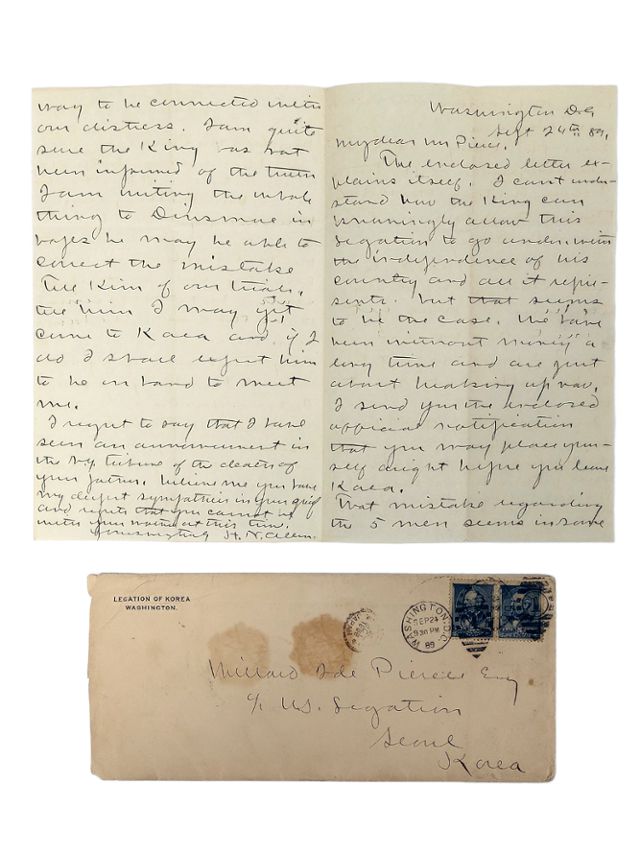 Washington D.C.
Sept 24th 89.
My dear Mr Pierce.
The enclosed letter ex-
plains itself. I can't under-
stand how the King can
knowingly allow this
Legation to go under with
the independence of his
country and all it repre-
sents. but that seems
to be the case. We have
been without money a
long time and are just
about breaking up now.
I send you the enclosed
official notification
that you may place your-
self aright before you leave
Korea.
That mistake regarding
the 5 men seems in some
way to be connected with
our distress. I am quite
sure the King has not
been informed of the truth
I am writing the whole
thing to Dinsmore in
hopes he may be able to
correct the mistake
The Kim of our trials,
the him I may yet
come to Korea and if I
do I shall expect him
to be on hand to meet
me.
I regret to say that I have
seen an announcement in
the N.Y. Tribune of the death of
your father. Believe me you have
my deepest sympathies in your grief
and regrets that you cannot be
with your mother at this time.
H. N. Allen.
LEGATION OF KOREA
WASHINGTON.
WASHINGTON, D.C.
SEP 24
9 30 PM
89
Millard Ide Pierce Esq
c/o U.S. Legation
Seoul
Korea